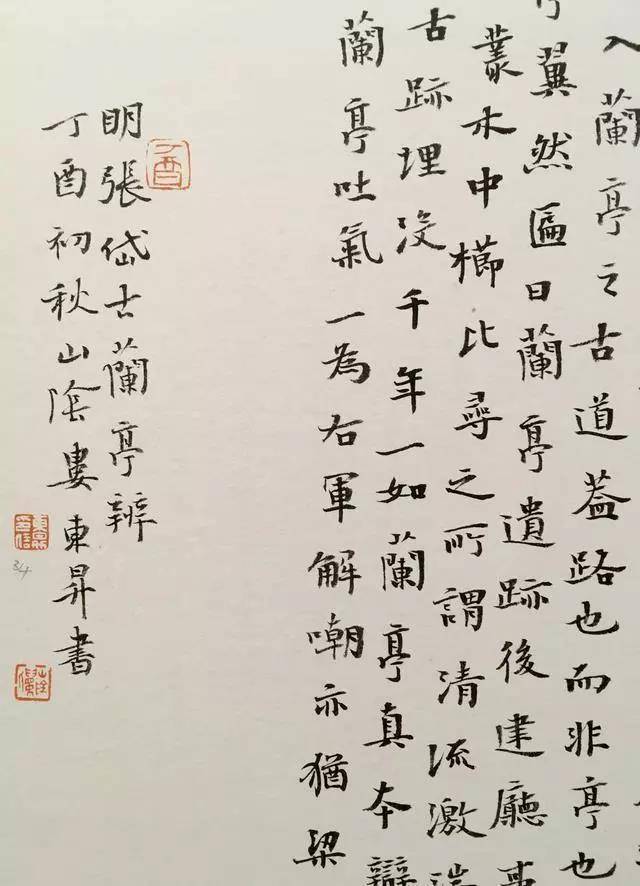 入蘭亭之古道蓋路也而非亭也
翼然匾曰蘭亭遺跡後建廳事
叢木中櫛比尋之所謂清流激湍
古跡埋沒千年一如蘭亭真本辯
蘭亭吐氣一為右軍解嘲亦猶梁
明張岱古蘭亭辨
丁酉初秋山陰婁東昇書
丁酉
34